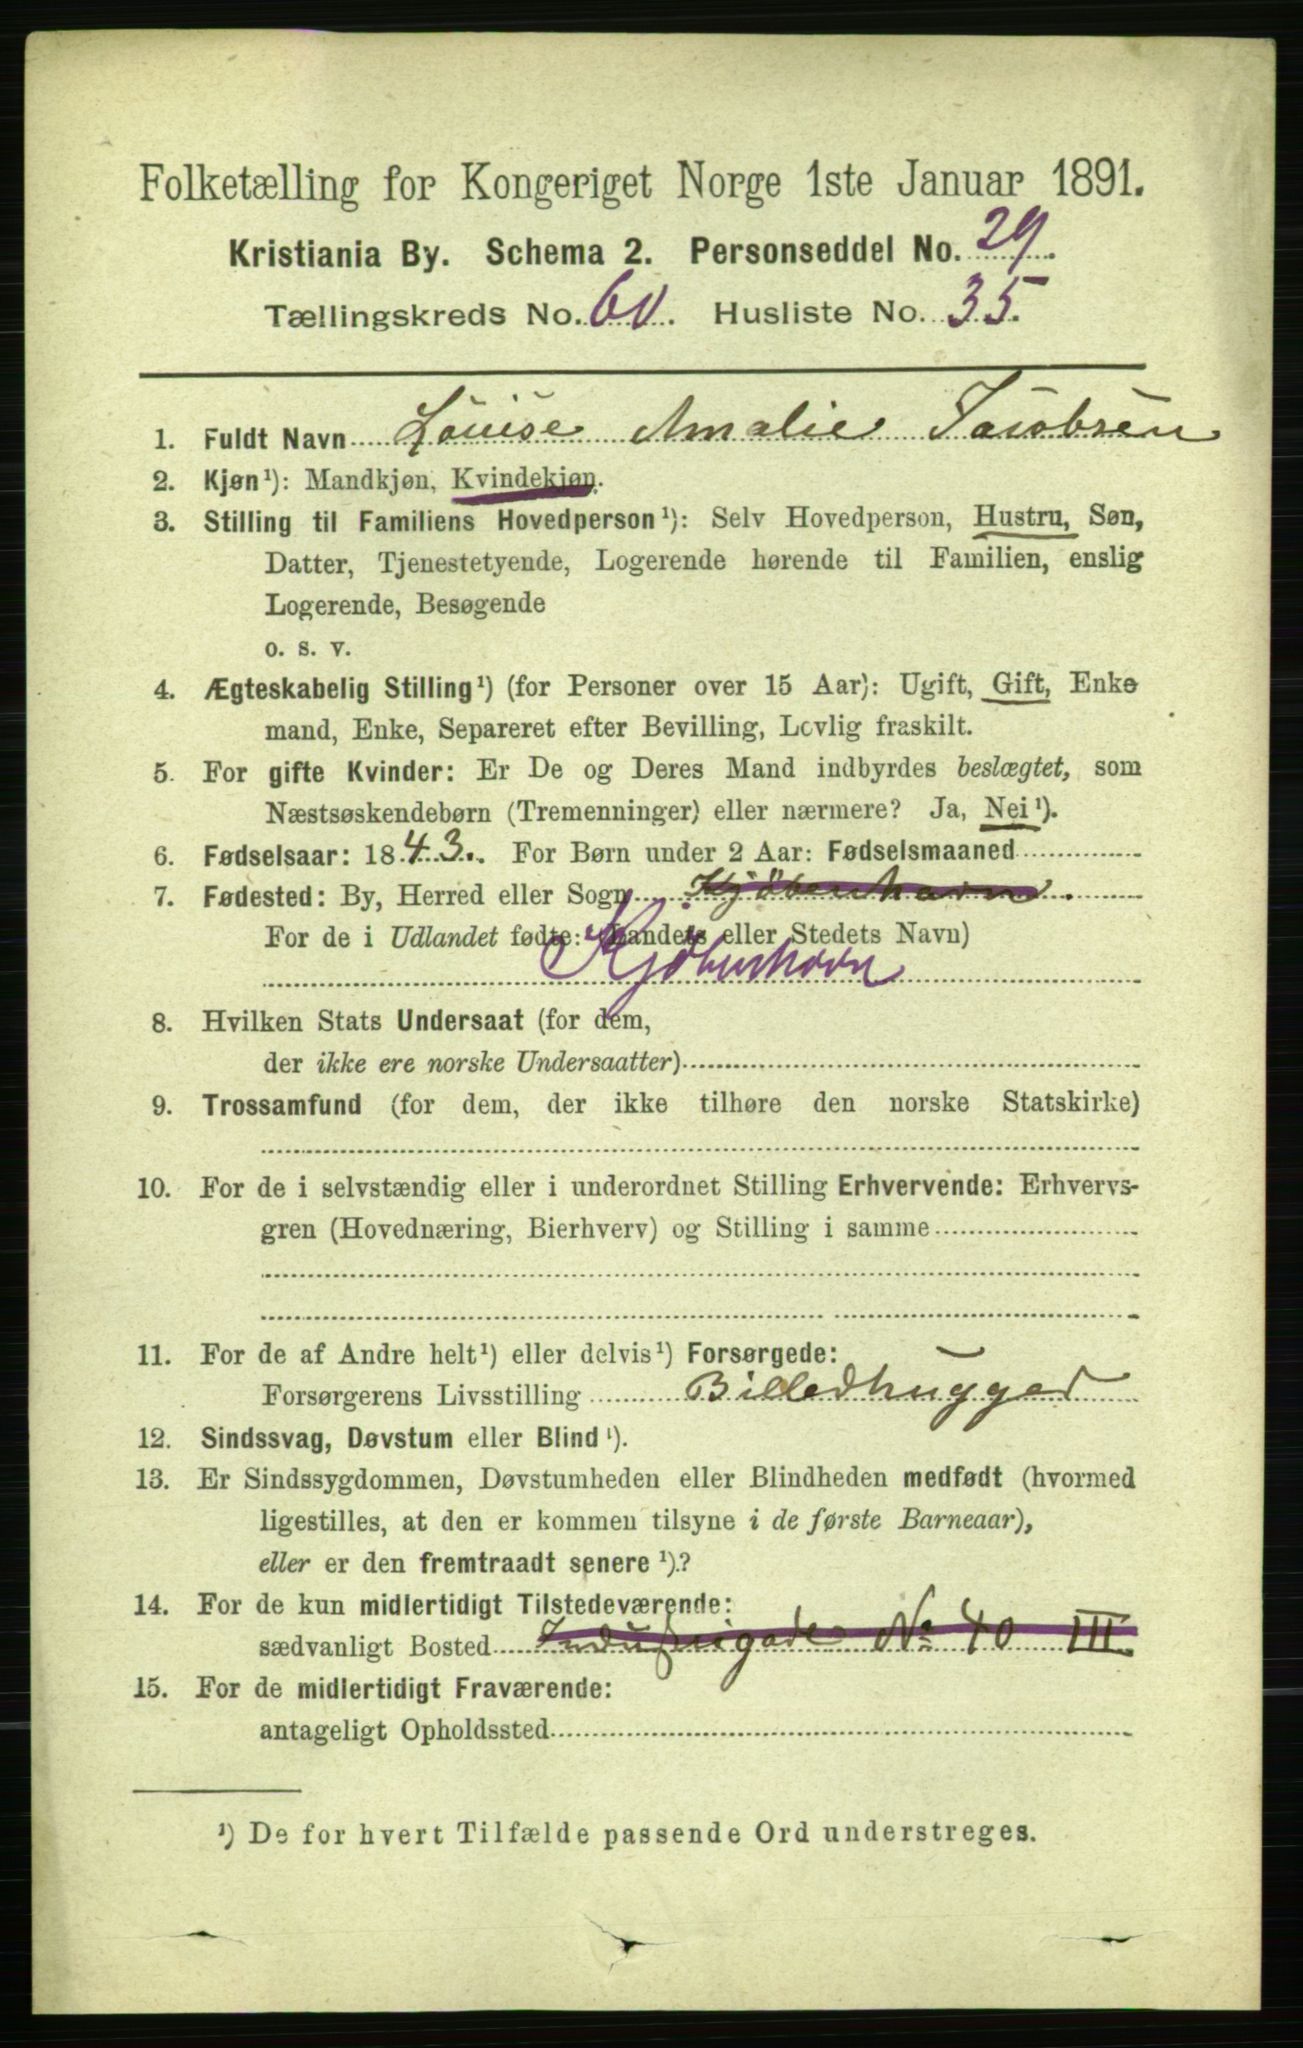 Folketælling for Kongeriget Norge 1ste Januar 1891.
Kristiania By. Schema 2. Personseddel No. 29.
Tællingskreds No. 60. Husliste No. 35.
1. Fuldt Navn Louise Amalie Jacobsen
2. Kjøn¹): Mandkjøn, Kvindekjøn.
3. Stilling til Familiens Hovedperson¹): Selv Hovedperson, Hustru, Søn,
Datter, Tjenestetyende, Logerende hørende til Familien, enslig
Logerende, Besøgende
o. s. v.
4. Ægteskabelig Stilling¹) (for Personer over 15 Aar): Ugift, Gift, Enke
mand, Enke, Separeret efter Bevilling, Lovlig fraskilt.
5. For gifte Kvinder: Er De og Deres Mand indbyrdes beslægtet, som
Næstsøskendebørn (Tremenninger) eller nærmere? Ja, Nei¹).
6. Fødselsaar: 1843. For Børn under 2 Aar: Fødselsmaaned
7. Fødested: By, Herred eller Sogn Kjöbenhavn.
For de i Udlandet fødte: (Landets eller Stedets Navn)
Kjöbenhavn
8. Hvilken Stats Undersaat (for dem,
der ikke ere norske Undersaatter)
9. Trossamfund (for dem, der ikke tilhøre den norske Statskirke)
10. For de i selvstændig eller i underordnet Stilling Erhvervende: Erhvervs-
gren (Hovednæring, Bierhverv) og Stilling i samme
11. For de af Andre helt¹) eller delvis¹) Forsørgede:
Forsørgerens Livsstilling Billedhugger
12. Sindssvag, Døvstum eller Blind¹).
13. Er Sindssygdommen, Døvstumheden eller Blindheden medfødt (hvormed
ligestilles, at den er kommen tilsyne i de første Barneaar),
eller er den fremtraadt senere¹).?
14. For de kun midlertidigt Tilstedeværende:
sædvanligt Bosted Industrigade No 40 III
15. For de midlertidigt Fraværende:
antageligt Opholdssted
¹) De for hvert Tilfælde passende Ord understreges.